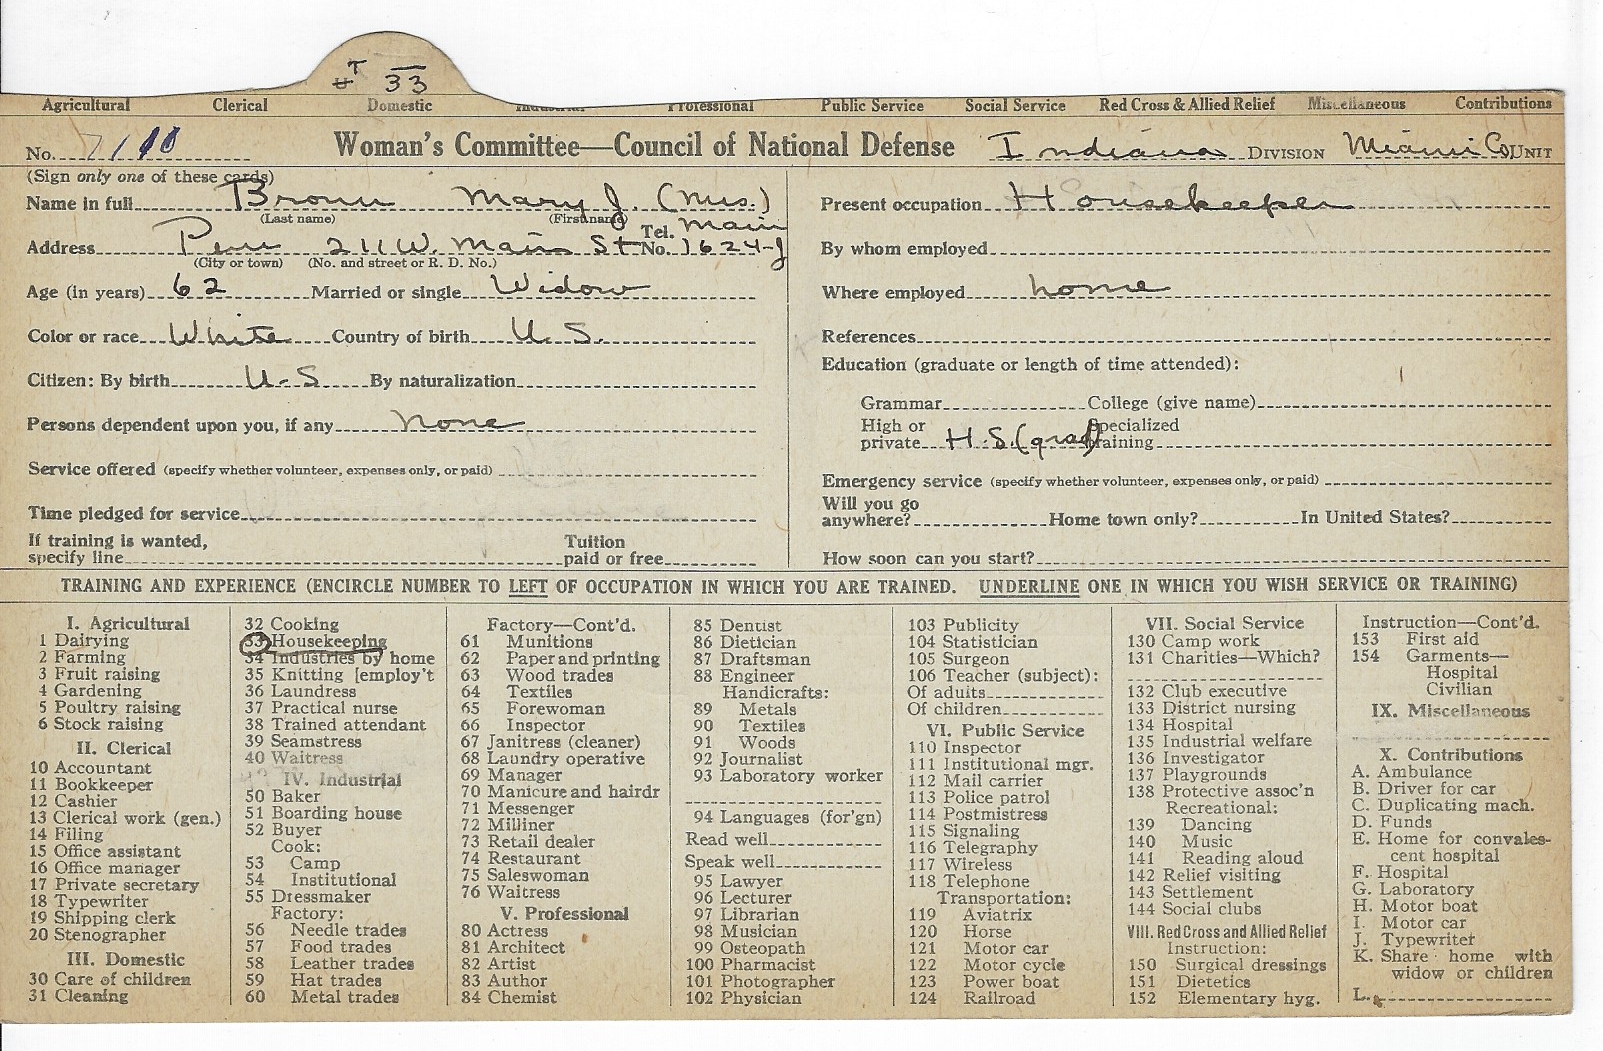 T 33
Agricultural Clerical Domestic Industrial Professional Public Service Social Service Red Cross & Allied Relief Miscellaneous Contributions
No. 7110 Woman's Committee—Council of National Defense Indiana DIVISION Miami Co UNIT
(Sign only one of these cards)
Name in full Brown Mary J. (Mrs.)
(Last name) (First name)
Address Peru 211 W. Main St Tel. No. Main 1624-J
(City or town) (No. and street or R. D. No.)
Age (in years) 62 Married or single Widow
Color or race White Country of birth U.S.
Citizen: By birth U-S By naturalization
Persons dependent upon you, if any none
Service offered (specify whether volunteer, expenses only, or paid)
Time pledged for service
If training is wanted,
specify line Tuition paid or free
Present occupation Housekeeper
By whom employed
Where employed home
References
Education (graduate or length of time attended):
Grammar College (give name)
High or private H.S. (grad) Specialized training
Emergency service (specify whether volunteer, expenses only, or paid)
Will you go
anywhere? Home town only? In United States?
How soon can you start?
TRAINING AND EXPERIENCE (ENCIRCLE NUMBER TO LEFT OF OCCUPATION IN WHICH YOU ARE TRAINED. UNDERLINE ONE IN WHICH YOU WISH SERVICE OR TRAINING)
I. Agricultural
1 Dairying
2 Farming
3 Fruit raising
4 Gardening
5 Poultry raising
6 Stock raising
II. Clerical
10 Accountant
11 Bookkeeper
12 Cashier
13 Clerical work (gen.)
14 Filing
15 Office assistant
16 Office manager
17 Private secretary
18 Typewriter
19 Shipping clerk
20 Stenographer
III. Domestic
30 Care of children
31 Cleaning
32 Cooking
33 Housekeeping
34 Industries by home
35 Knitting [employ't
36 Laundress
37 Practical nurse
38 Trained attendant
39 Seamstress
40 Waitress
IV. Industrial
50 Baker
51 Boarding house
52 Buyer
Cook:
53 Camp
54 Institutional
55 Dressmaker
Factory:
56 Needle trades
57 Food trades
58 Leather trades
59 Hat trades
60 Metal trades
Factory—Cont'd.
61 Munitions
62 Paper and printing
63 Wood trades
64 Textiles
65 Forewoman
66 Inspector
67 Janitress (cleaner)
68 Laundry operative
69 Manager
70 Manicure and hairdr
71 Messenger
72 Milliner
73 Retail dealer
74 Restaurant
75 Saleswoman
76 Waitress
V. Professional
80 Actress
81 Architect
82 Artist
83 Author
84 Chemist
85 Dentist
86 Dietician
87 Draftsman
88 Engineer
Handicrafts:
89 Metals
90 Textiles
91 Woods
92 Journalist
93 Laboratory worker
94 Languages (for'gn)
Read well
Speak well
95 Lawyer
96 Lecturer
97 Librarian
98 Musician
99 Osteopath
100 Pharmacist
101 Photographer
102 Physician
103 Publicity
104 Statistician
105 Surgeon
106 Teacher (subject):
Of adults
Of children
VI. Public Service
110 Inspector
111 Institutional mgr.
112 Mail carrier
113 Police patrol
114 Postmistress
115 Signaling
116 Telegraphy
117 Wireless
118 Telephone
Transportation:
119 Aviatrix
120 Horse
121 Motor car
122 Motor cycle
123 Power boat
124 Railroad
VII. Social Service
130 Camp work
131 Charities—Which?
132 Club executive
133 District nursing
134 Hospital
135 Industrial welfare
136 Investigator
137 Playgrounds
138 Protective assoc'n
Recreational:
139 Dancing
140 Music
141 Reading aloud
142 Relief visiting
143 Settlement
144 Social clubs
VIII. Red Cross and Allied Relief
Instruction:
150 Surgical dressings
151 Dietetics
152 Elementary hyg.
Instruction—Cont'd.
153 First aid
154 Garments—
Hospital
Civilian
IX. Miscellaneous
X. Contributions
A. Ambulance
B. Driver for car
C. Duplicating mach.
D. Funds
E. Home for convales-
cent hospital
F. Hospital
G. Laboratory
H. Motor boat
I. Motor car
J. Typewriter
K. Share home with
widow or children
L.